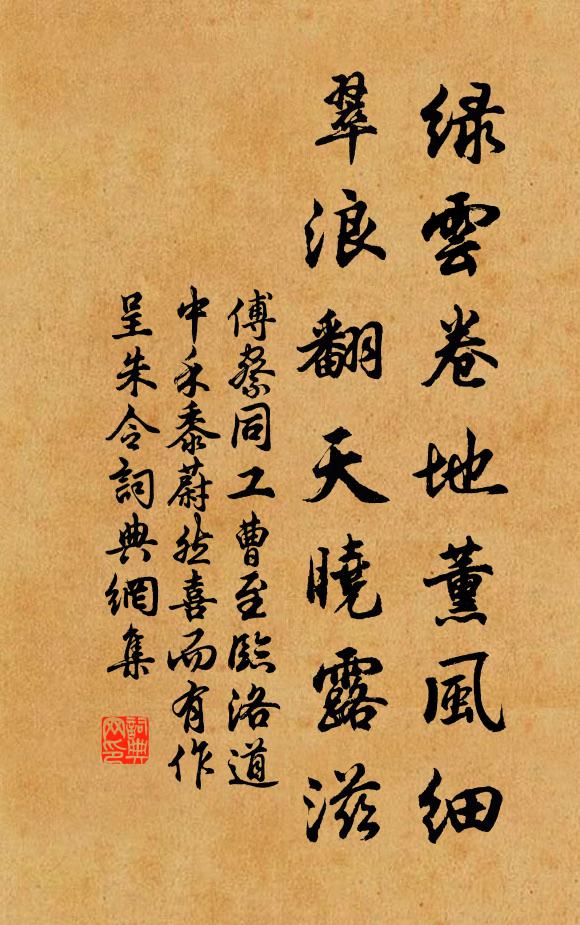 緑雲卷地薰風細
翠浪翻天曉露滋
傅察同工曹至臨洛道
中禾黍蔚然喜而有作
呈朱令詞典網集
詞典網印